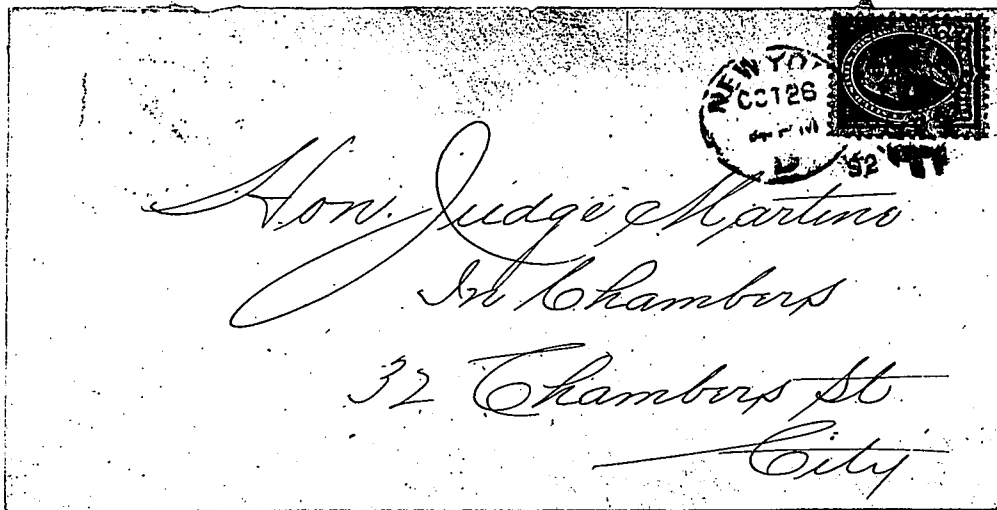 NEW YO
OCT 26
D
92
Hon. Judge Martine
In Chambers
32 Chambers St
City